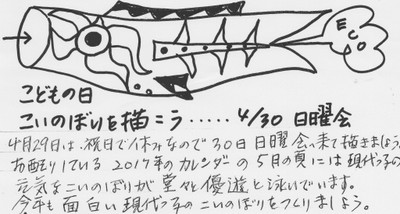 ECO
こどもの日
こいのぼりを描こう・・・・・4/30 日曜会
4月29日は、祝日で休みなので30日日曜会へ来て描きましょう。
お配りしている2017年のカレンダーの5月の頁には現代っ子の
元気なこいのぼりが堂々優遊と泳いでいます。
今年も面白い現代っ子のこいのぼりをつくりましょう。